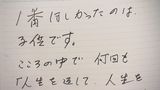 1番何しかったのは、
子供です。
こころの中で 何回も
「人生を返して、人生を